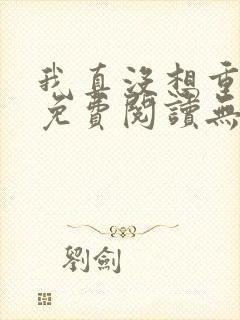 我真沒想重
免費閱讀無
劉劍